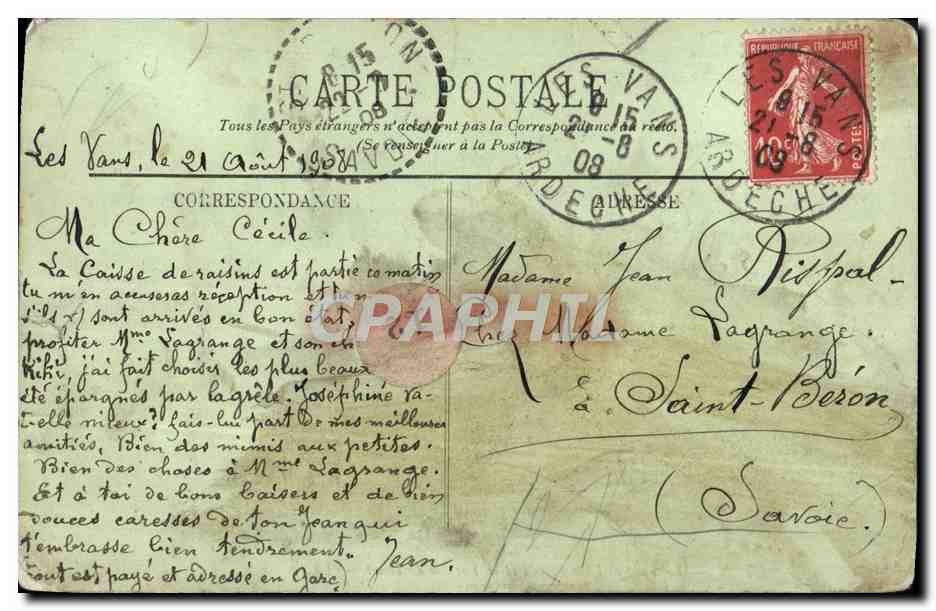 CARTE POSTALE
Tous les Pays étrangers n'acceptent pas la Correspondance au recto.
(Se renseigner à la Poste)
RÉPUBLIQUE FRANÇAISE
10c POSTES
LES VANS
8 15
21 -8
08
ARDECHE
LES VANS
8 15
21 -8
08
ARDECHE
ON
8 15
22
08
SAV
Les Vans, le 21 Août 1908
CORRESPONDANCE
Ma Chère Cécile.
La Caisse de raisins est partie ce matin
tu m'en accuseras réception et
s'ils y sont arrivés en bon état,
profiter Mme Lagrange et son
Kiki, j'ai fait choisir les plus beaux
été épargnés par la grêle. Joséphine va-
t-elle mieux? fais-lui part de mes meilleures
amitiés, Bien des mimis aux petites.
Bien des choses à Mme Lagrange.
Et à toi de bons baisers et de bien
douces caresses de ton Jean qui
t'embrasse bien tendrement.
Jean.
tout est payé et adressé en Gare)
ADRESSE
Madame Jean Rispal
chez Madame Lagrange.
à Saint-Béron
(Savoie.)
CPAPHIL